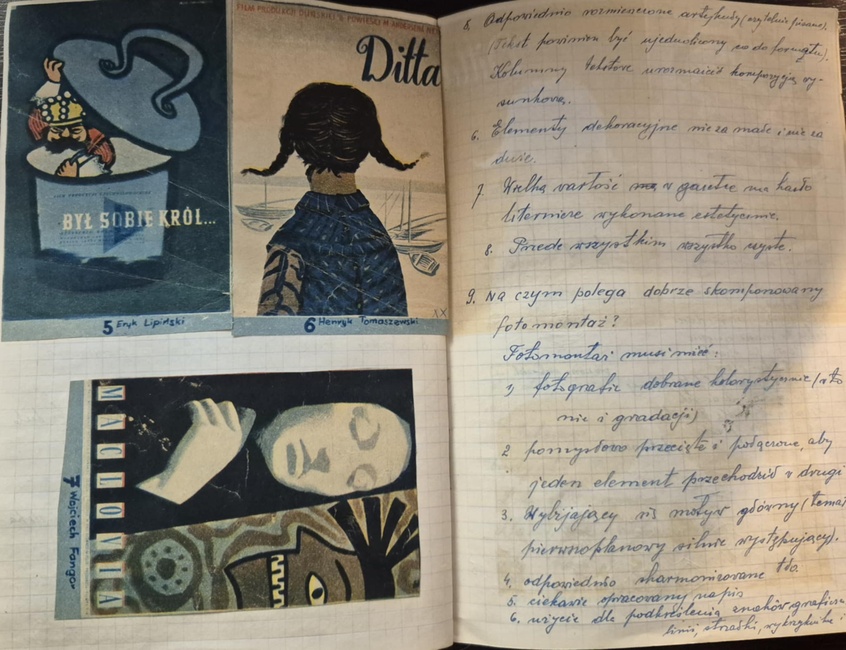 FILM PRODUKCJI DUŃSKIEJ WG POWIEŚCI M. ANDERSENA
Ditta
BYŁ SOBIE KRÓL...
5 Eryk Lipiński
6 Henryk Tomaszewski
MACLOVIA
7 Wojciech Fangor
Odpowiednio rozmieszczone artykuły (czytelnie pisane).
(Tekst powinien być ujednolicony co do formatu).
Kolumny tekstowe urozmaicić kompozycją ry-
sunkową.
6. Elementy dekoracyjne nie za małe i nie za
duże.
7. Wielką wartość w gazetce ma hasło
liternicze wykonane estetycznie.
8. Przede wszystkim wszystko czyste.
9. Na czym polega dobrze skomponowany
fotomontaż?
Fotomontaż musi mieć:
1) fotografie dobrane kolorystycznie (
nie i gradacji)
2 pomysłowo przecięte i połączone, aby
jeden element przechodził w drugi
3. Wybijający się motyw główny (temat
pierwszoplanowy silnie występujący).
4. odpowiednio zharmonizowane tło
5. ciekawie opracowany napis
6. użycie dla podkreślenia znaków graficzn
linii, strzałki, wykrzykniki i